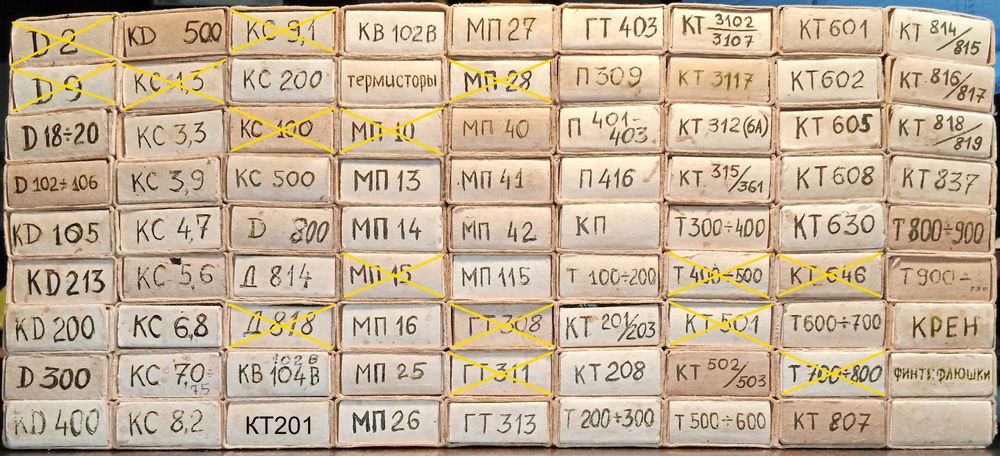 D 2 KD 500 КС 9,1 КВ 102 В МП 27 ГТ 403 КТ 3102/3107 КТ 601 КТ 814/815
D 9 КС 1,3 КС 200 термисторы МП 28 П 309 КТ 3117 КТ 602 КТ 816/817
D 18÷20 КС 3,3 КС 100 МП 10 МП 40 П 401-403 КТ 312 (6А) КТ 605 КТ 818/819
D 102÷106 КС 3,9 КС 500 МП 13 МП 41 П 416 КТ 315/361 КТ 608 КТ 837
KD 105 КС 4,7 D 800 МП 14 МП 42 КП Т 300÷400 КТ 630 Т 800÷900
KD 213 КС 5,6 Д 814 МП 15 МП 115 Т 100÷200 Т 400÷500 КТ 646 Т 900÷
KD 200 КС 6,8 Д 818 МП 16 ГТ 308 КТ 201/203 КТ 501 Т 600÷700 КРЕН
D 300 КС 7,0-7,5 КВ 102 В 104 В МП 25 ГТ 311 КТ 208 КТ 502/503 Т 700÷800 финтифлюшки
KD 400 КС 8,2 КТ201 МП 26 ГТ 313 Т 200÷300 Т 500÷600 КТ 807